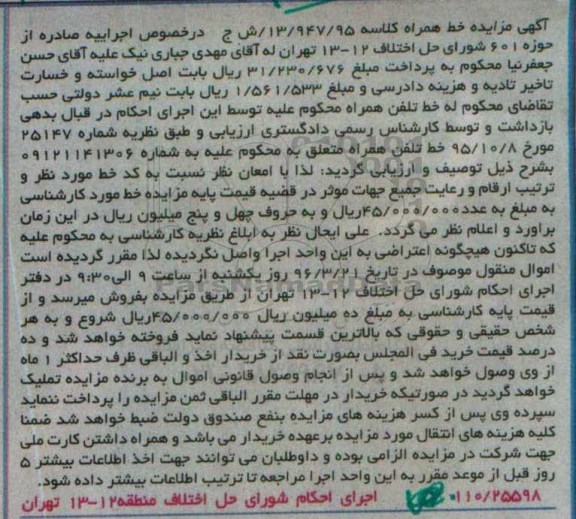 آگهی مزایده خط همراه کلاسه ۱۳/۹۴۷/۹۵/ش ج درخصوص اجراییه صادره از
حوزه ۶۰۱ شورای حل اختلاف ۱۲-۱۳ تهران له آقای مهدی جباری نیک علیه آقای حسن
جعفرنیا محکوم به پرداخت مبلغ ۳۱/۲۳۰/۶۷۶ ریال بابت اصل خواسته و خسارت
تاخیر تادیه و هزینه دادرسی و مبلغ ۱/۵۶۱/۵۳۳ ریال بابت نیم عشر دولتی حسب
تقاضای محکوم له خط تلفن همراه محکوم علیه توسط این اجرای احکام در قبال بدهی
بازداشت و توسط کارشناس رسمی دادگستری ارزیابی و طبق نظریه شماره ۲۵۱۴۷
مورخ ۹۵/۱۰/۸ خط تلفن همراه متعلق به محکوم علیه به شماره ۰۹۱۲۱۱۴۱۳۰۶
بشرح ذیل توصیف و ارزیابی گردید: لذا با امعان نظر نسبت به کد خط مورد نظر و
ترتیب ارقام و رعایت جمیع جهات موثر در قضیه قیمت پایه مزایده خط مورد کارشناسی
به مبلغ به عدد۴۵/۰۰۰/۰۰۰ریال و به حروف چهل و پنج میلیون ریال در این زمان
براورد و اعلام نظر می گردد. علی ایحال نظر به ابلاغ نظریه کارشناسی به محکوم علیه
که تاکنون هیچگونه اعتراضی به این واحد اجرا واصل نگردیده لذا مقرر گردیده است
اموال منقول موصوف در تاریخ ۹۶/۳/۲۱ روز یکشنبه از ساعت ۹ الی۹:۳۰ در دفتر
اجرای احکام شورای حل اختلاف ۱۲-۱۳ تهران از طریق مزایده بفروش میرسد و از
قیمت پایه کارشناسی به مبلغ ده میلیون ریال ۴۵/۰۰۰/۰۰۰ریال شروع و به هر
شخص حقیقی و حقوقی که بالاترین قسمت پیشنهاد نماید فروخته خواهد شد و ده
درصد قیمت خرید فی المجلس بصورت نقد از خریدار اخذ و الباقی ظرف حداکثر ۱ ماه
از وی وصول خواهد شد و پس از انجام وصول قانونی اموال به برنده مزایده تملیک
خواهد گردید در صورتیکه خریدار در مهلت مقرر الباقی ثمن مزایده را پرداخت ننماید
سپرده وی پس از کسر هزینه های مزایده بنفع صندوق دولت ضبط خواهد شد ضمنا
کلیه هزینه های انتقال مورد مزایده برعهده خریدار می باشد و همراه داشتن کارت ملی
جهت شرکت در مزایده الزامی بوده و داوطلبان می توانند جهت اخذ اطلاعات بیشتر ۵
روز قبل از موعد مقرر به این واحد اجرا مراجعه تا ترتیب اطلاعات بیشتر داده شود.
۱۱۰/۲۵۵۹۸ اجرای احکام شورای حل اختلاف منطقه۱۲-۱۳ تهران